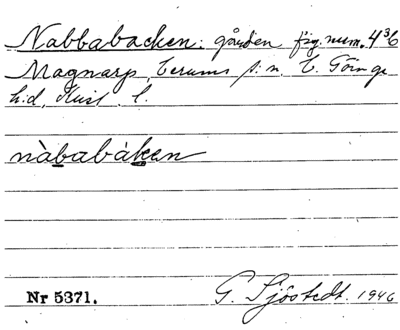 Nabbabacken: gården fig. num. 4³6
Magnarp, Verums s:n. V. Göinge
h:d, Krist. l.
nàbabàken
Nr 5371. G. Sjöstedt. 1946